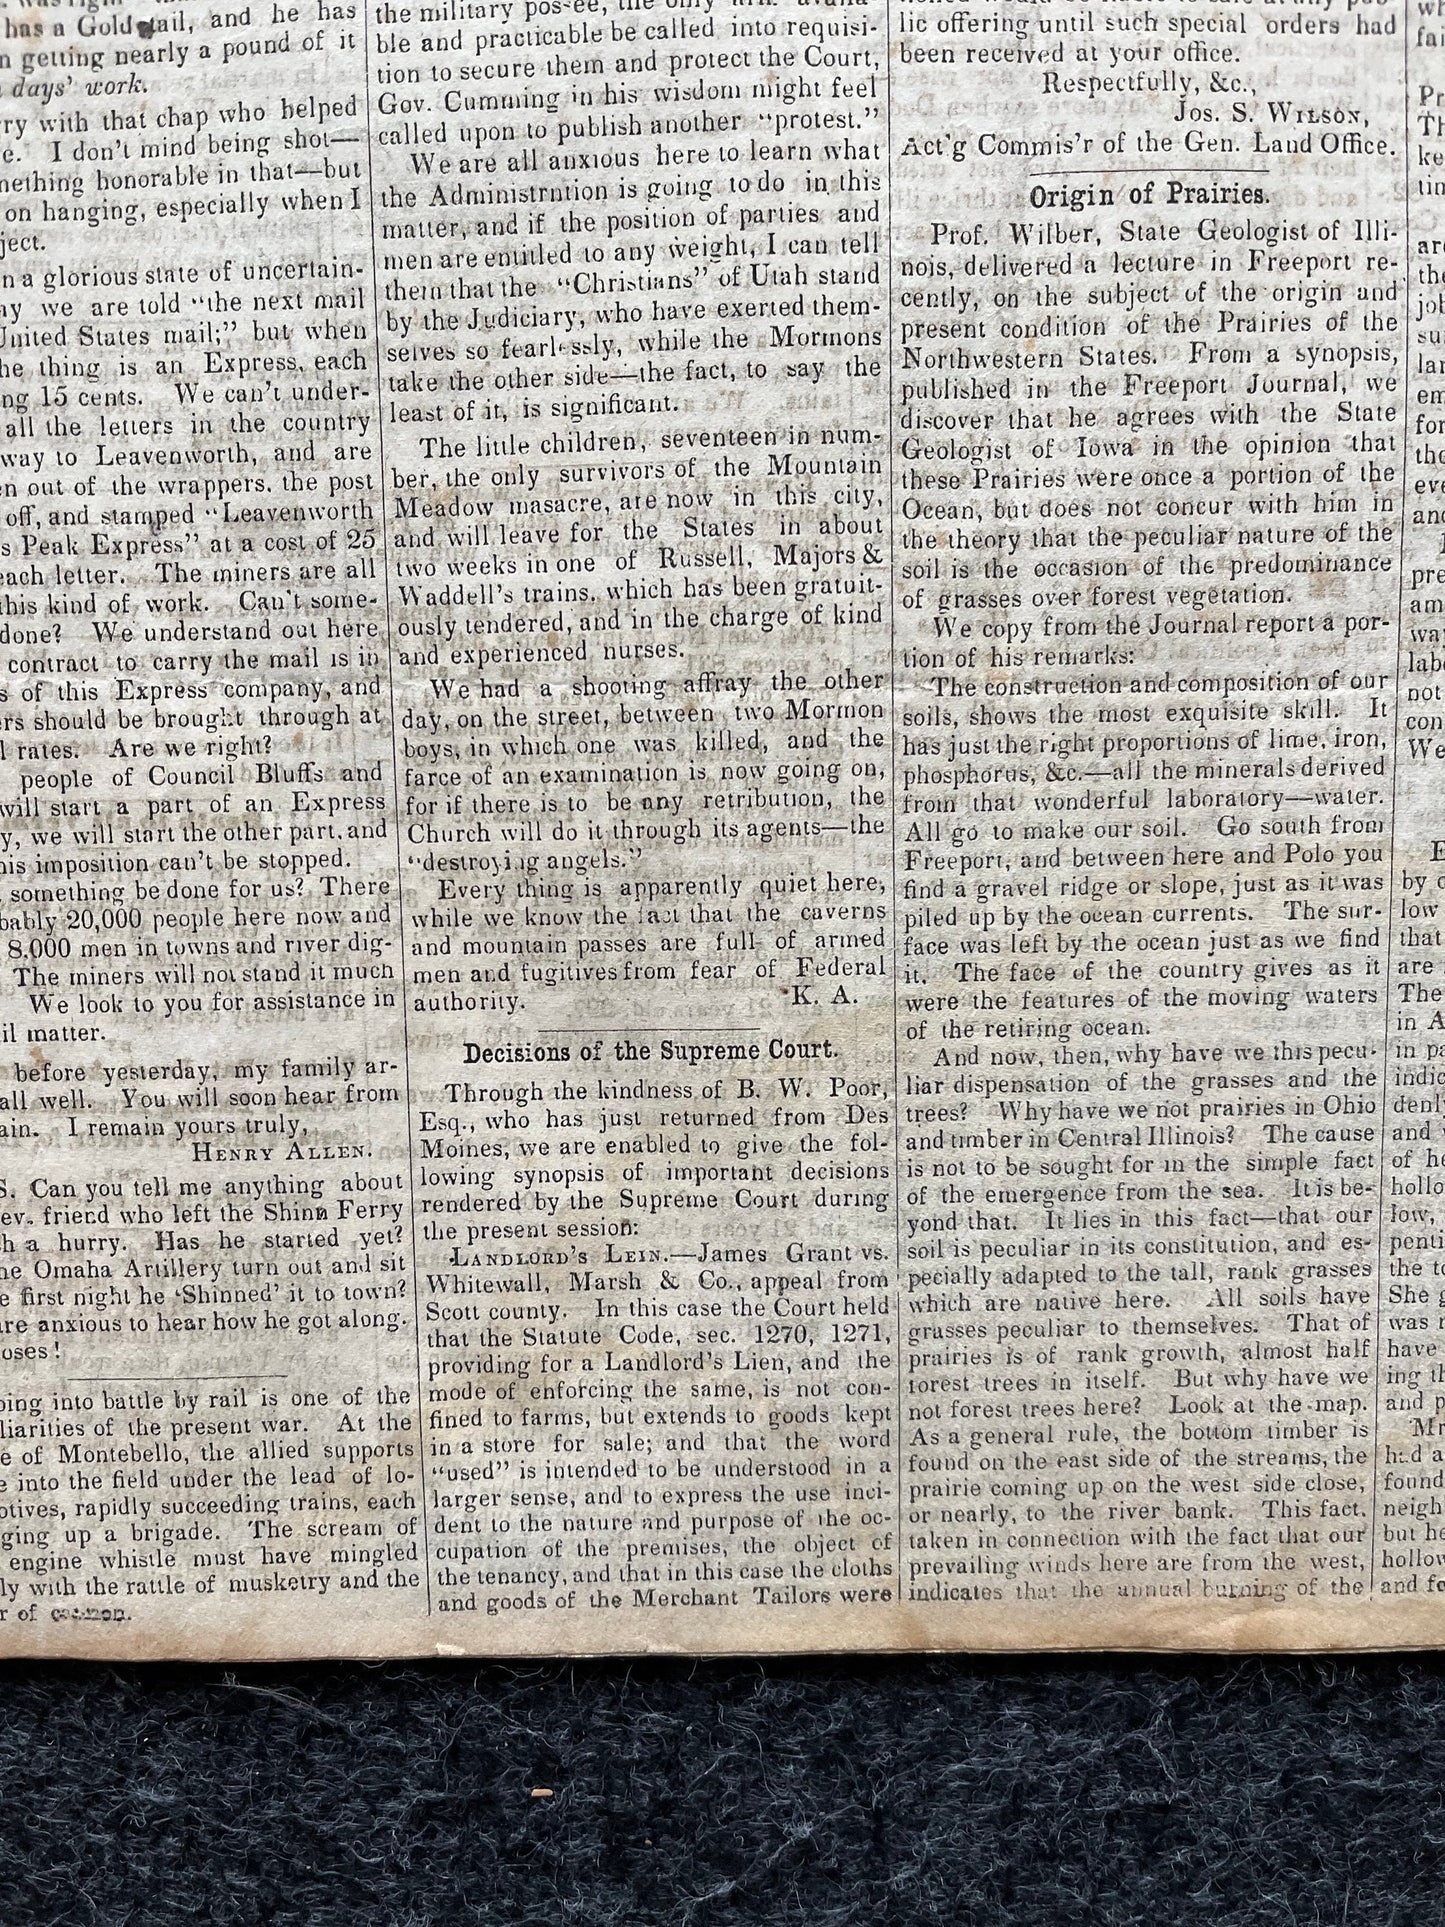 has a Gold tail, and he has
getting nearly a pound of it
days' work.
ry with that chap who helped
e. I don't mind being shot—
mething honorable in that—but
on hanging, especially when I
ject.
n a glorious state of uncertain-
ay we are told "the next mail
United States mail;" but when
he thing is an Express, each
ng 15 cents. We can't under-
all the letters in the country
way to Leavenworth, and are
en out of the wrappers, the post
off, and stamped "Leavenworth
s Peak Express" at a cost of 25
each letter. The miners are all
this kind of work. Can't some-
done? We understand out here
contract to carry the mail is in
s of this Express company, and
ers should be brought through at
l rates. Are we right?
people of Council Bluffs and
will start a part of an Express
y, we will start the other part, and
his imposition can't be stopped.
something be done for us? There
bably 20,000 people here now and
8,000 men in towns and river dig-
The miners will not stand it much
We look to you for assistance in
il matter.
before yesterday, my family ar-
all well. You will soon hear from
ain. I remain yours truly,
HENRY ALLEN.
S. Can you tell me anything about
ev. friend who left the Shinn Ferry
h a hurry. Has he started yet?
he Omaha Artillery turn out and sit
e first night he 'Shinned' it to town?
are anxious to hear how he got along.
oses!
oing into battle by rail is one of the
liarities of the present war. At the
e of Montebello, the allied supports
e into the field under the lead of lo-
otives, rapidly succeeding trains, each
ging up a brigade. The scream of
engine whistle must have mingled
ly with the rattle of musketry and the
r of cannon.
the military possee, the only
ble and practicable be called into requisi-
tion to secure them and protect the Court,
Gov. Cumming in his wisdom might feel
called upon to publish another "protest."
We are all anxious here to learn what
the Administration is going to do in this
matter, and if the position of parties and
men are entitled to any weight, I can tell
them that the "Christians" of Utah stand
by the Judiciary, who have exerted them-
selves so fearlessly, while the Mormons
take the other side—the fact, to say the
least of it, is significant.
The little children, seventeen in num-
ber, the only survivors of the Mountain
Meadow masacre, are now in this city,
and will leave for the States in about
two weeks in one of Russell, Majors &
Waddell's trains, which has been gratuit-
ously tendered, and in the charge of kind
and experienced nurses.
We had a shooting affray the other
day, on the street, between two Mormon
boys, in which one was killed, and the
farce of an examination is now going on,
for if there is to be any retribution, the
Church will do it through its agents—the
"destroying angels."
Every thing is apparently quiet here,
while we know the fact that the caverns
and mountain passes are full of armed
men and fugitives from fear of Federal
authority. K. A.
Decisions of the Supreme Court.
Through the kindness of B. W. Poor,
Esq., who has just returned from Des
Moines, we are enabled to give the fol-
lowing synopsis of important decisions
rendered by the Supreme Court during
the present session:
LANDLORD'S LEIN.—James Grant vs.
Whitewall, Marsh & Co., appeal from
Scott county. In this case the Court held
that the Statute Code, sec. 1270, 1271,
providing for a Landlord's Lien, and the
mode of enforcing the same, is not con-
fined to farms, but extends to goods kept
in a store for sale; and that the word
"used" is intended to be understood in a
larger sense, and to express the use inci-
dent to the nature and purpose of the oc-
cupation of the premises, the object of
the tenancy, and that in this case the cloths
and goods of the Merchant Tailors were
lic offering until such special orders had
been received at your office.
Respectfully, &c.,
JOS. S. WILSON,
Act'g Commis'r of the Gen. Land Office.
Origin of Prairies.
Prof. Wilber, State Geologist of Illi-
nois, delivered a lecture in Freeport re-
cently, on the subject of the origin and
present condition of the Prairies of the
Northwestern States. From a synopsis,
published in the Freeport Journal, we
discover that he agrees with the State
Geologist of Iowa in the opinion that
these Prairies were once a portion of the
Ocean, but does not concur with him in
the theory that the peculiar nature of the
soil is the occasion of the predominance
of grasses over forest vegetation.
We copy from the Journal report a por-
tion of his remarks:
The construction and composition of our
soils, shows the most exquisite skill. It
has just the right proportions of lime, iron,
phosphorus, &c.—all the minerals derived
from that wonderful laboratory—water.
All go to make our soil. Go south from
Freeport, and between here and Polo you
find a gravel ridge or slope, just as it was
piled up by the ocean currents. The sur-
face was left by the ocean just as we find
it. The face of the country gives as it
were the features of the moving waters
of the retiring ocean.
And now, then, why have we this pecu-
liar dispensation of the grasses and the
trees? Why have we not prairies in Ohio
and timber in Central Illinois? The cause
is not to be sought for in the simple fact
of the emergence from the sea. It is be-
yond that. It lies in this fact—that our
soil is peculiar in its constitution, and es-
pecially adapted to the tall, rank grasses
which are native here. All soils have
grasses peculiar to themselves. That of
prairies is of rank growth, almost half
forest trees in itself. But why have we
not forest trees here? Look at the map.
As a general rule, the bottom timber is
found on the east side of the streams, the
prairie coming up on the west side close,
or nearly, to the river bank. This fact,
taken in connection with the fact that our
prevailing winds here are from the west,
indicates that the annual burning of the
wh
fai
Pr
Th
ke
tin
are
the
job
su
lar
em
for
the
eve
and
pre
am
wa
labo
not
con
We
E
by c
low
that
are
The
in A
in pa
indic
denl
and
of he
hollo
low,
penti
the to
She g
was r
have
ing th
and p
Mr
had a
found
neigh
but he
hollow
and fo